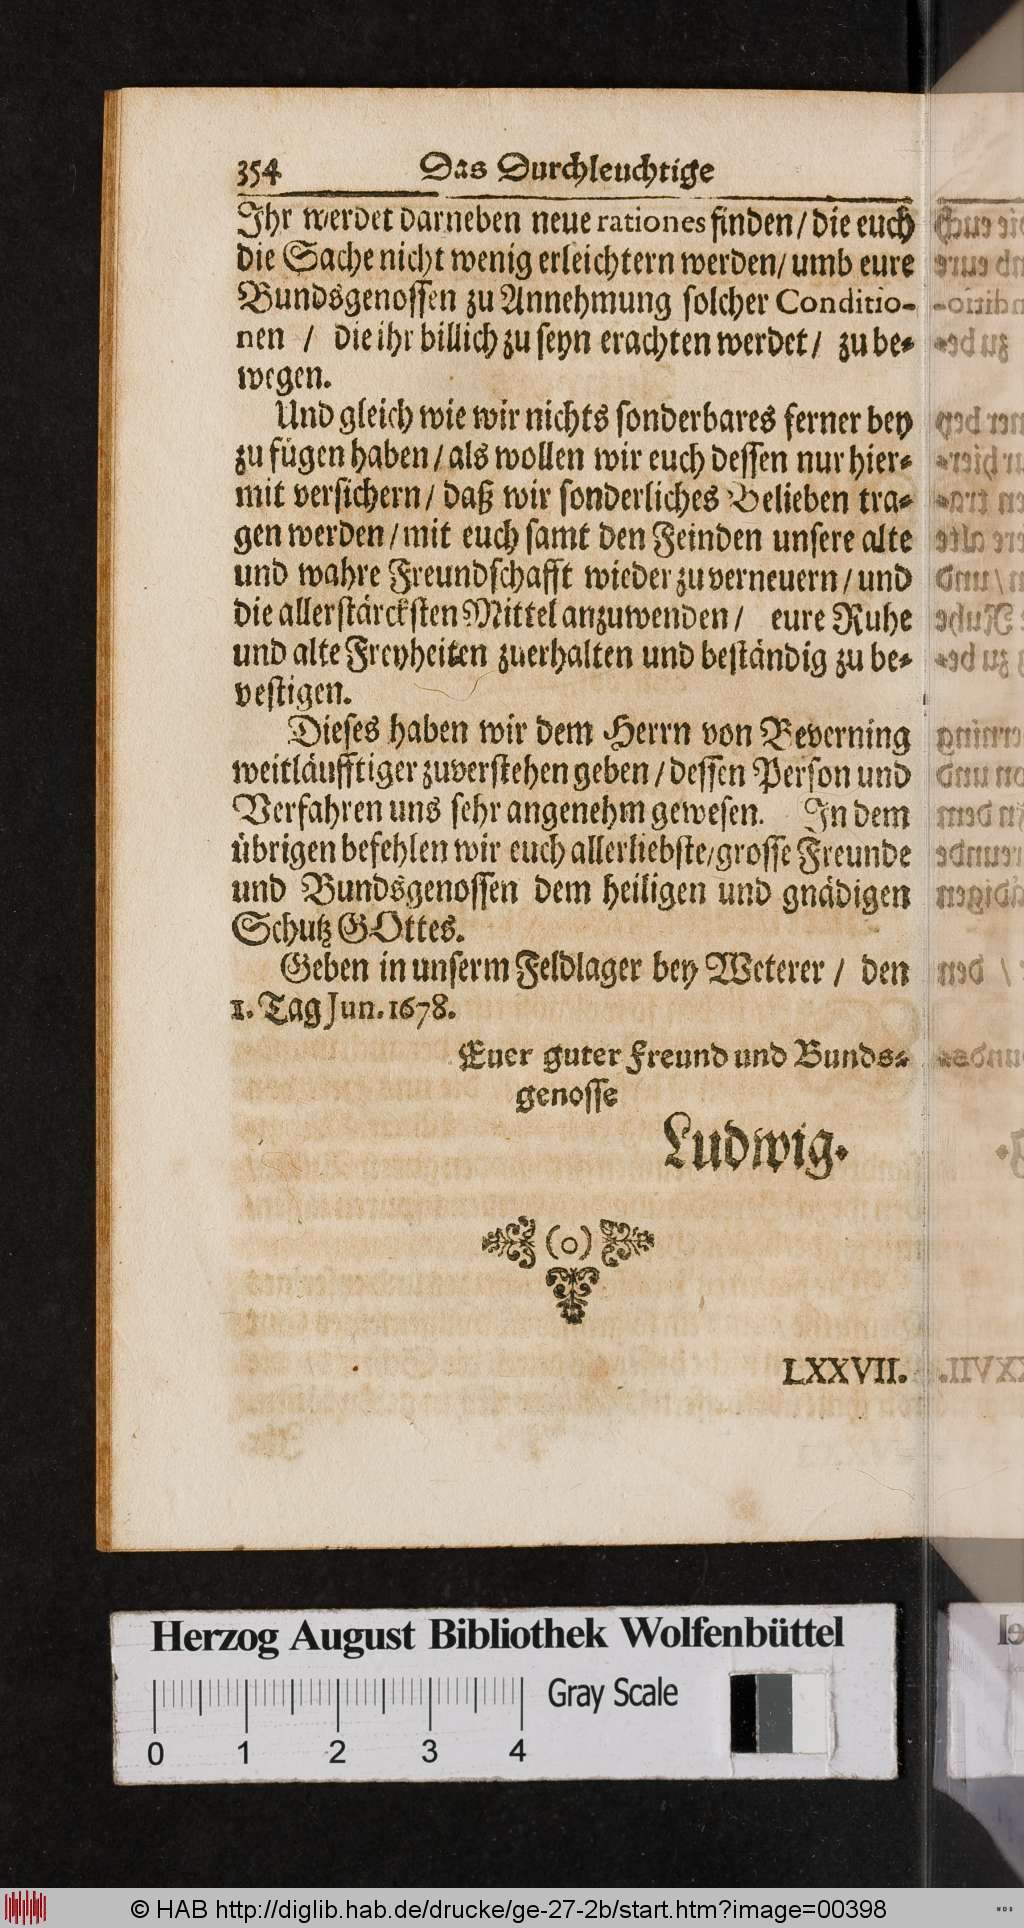 354 Das Durchleuchtige
Ihr werdet darneben neue rationes finden / die euch
die Sache nicht wenig erleichtern werden / umb eure
Bundsgenossen zu Annehmung solcher Conditio-
nen / die ihr billich zu seyn erachten werdet / zu be-
wegen.
Und gleich wie wir nichts sonderbares ferner bey
zu fügen haben / als wollen wir euch dessen nur hier-
mit versichern / daß wir sonderliches Belieben tra-
gen werden / mit euch samt den Feinden unsere alte
und wahre Freundschafft wieder zu verneuern / und
die allerstärcksten Mittel anzuwenden / eure Ruhe
und alte Freyheiten zuerhalten und beständig zu be-
vestigen.
Dieses haben wir dem Herrn von Beverning
weitläufftiger zuverstehen geben / dessen Person und
Verfahren uns sehr angenehm gewesen. In dem
übrigen befehlen wir euch allerliebste / grosse Freunde
und Bundsgenossen dem heiligen und gnädigen
Schutz GOttes.
Geben in unserm Feldlager bey Weterer / den
1. Tag Jun. 1678.
Euer guter Freund und Bunds-
genosse
Ludwig.
(o)
LXXVII.
Herzog August Bibliothek Wolfenbüttel
Gray Scale
0 1 2 3 4
© HAB http://diglib.hab.de/drucke/ge-27-2b/start.htm?image=00398